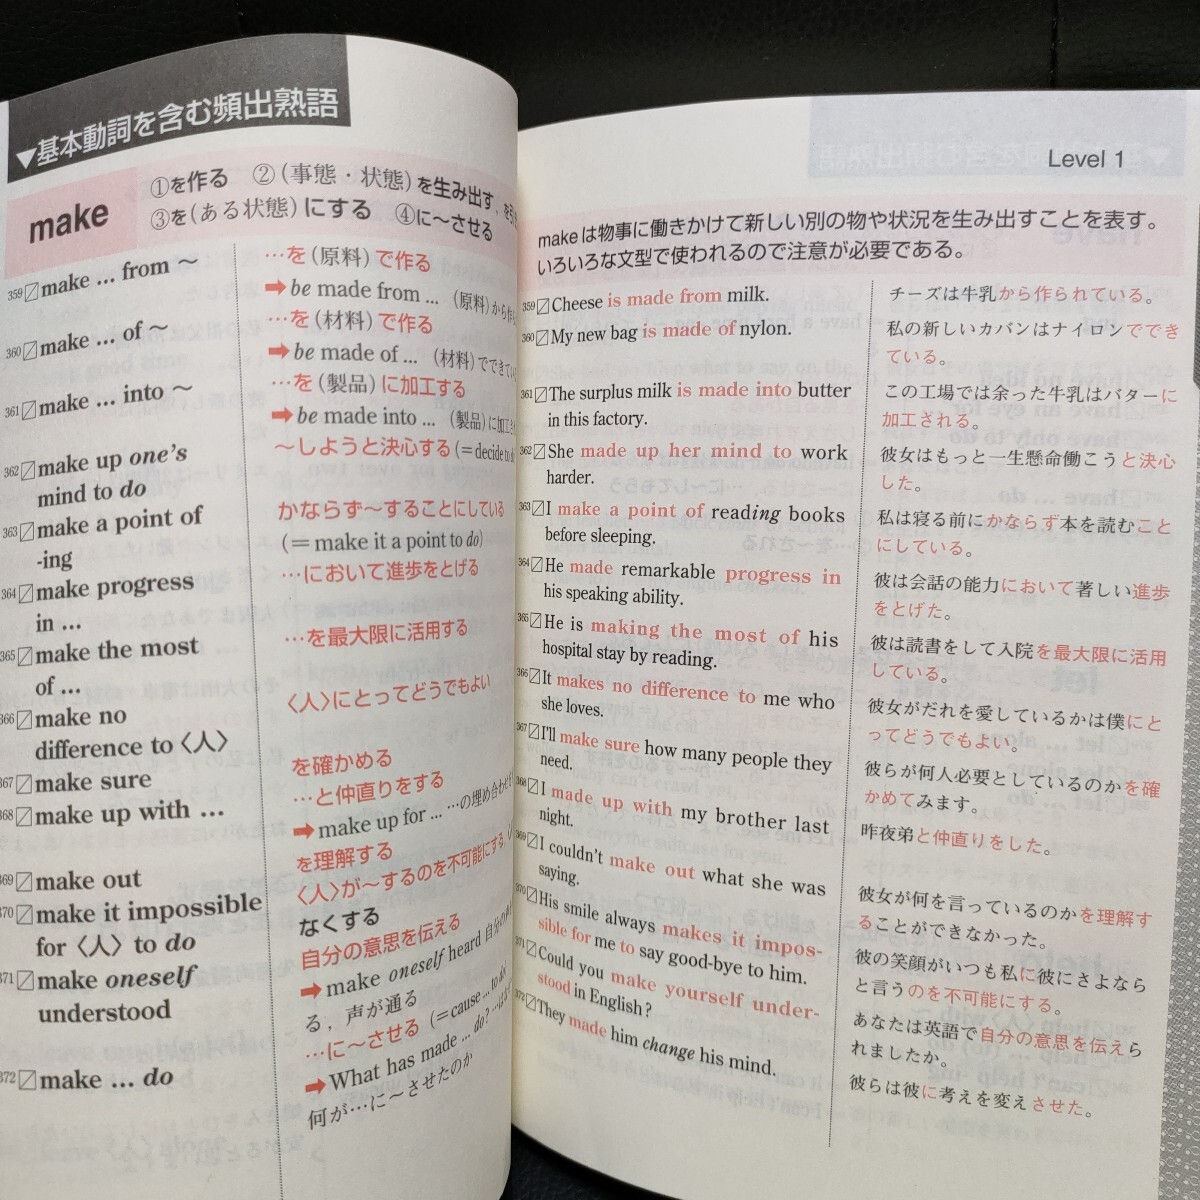 ▼基本動詞を含む頻出熟語
make
①を作る ②(事態・状態)を生み出す,
③を(ある状態)にする ④に〜させる
359 make … from 〜
…を(原料)で作る
➡ be made from … (原料)から作
360 make … of 〜
…を(材料)で作る
➡ be made of … (材料)でできてい
361 make … into 〜
…を(製品)に加工する
➡ be made into … (製品)に加工
362 make up one's
mind to do
〜しようと決心する(=decide to do
363 make a point of
-ing
かならず〜することにしている
(=make it a point to do)
364 make progress
in …
…において進歩をとげる
365 make the most
of …
…を最大限に活用する
366 make no
difference to〈人〉
〈人〉にとってどうでもよい
367 make sure
を確かめる
368 make up with …
…と仲直りをする
➡ make up for … …の埋め合わせを
369 make out
を理解する
370 make it impossible
for〈人〉to do
〈人〉が〜するのを不可能にする,
なくする
371 make oneself
understood
自分の意思を伝える
➡ make oneself heard 自分の
る,声が通る
372 make … do
…に〜させる (=cause … to do)
➡ What has made … do?
何が…に〜させたのか
Level 1
makeは物事に働きかけて新しい別の物や状況を生み出すことを表す。
いろいろな文型で使われるので注意が必要である。
359 Cheese is made from milk.
チーズは牛乳から作られている。
360 My new bag is made of nylon.
私の新しいカバンはナイロンででき
ている。
361 The surplus milk is made into butter
in this factory.
この工場では余った牛乳はバターに
加工される。
362 She made up her mind to work
harder.
彼女はもっと一生懸命働こうと決心
した。
363 I make a point of reading books
before sleeping.
私は寝る前にかならず本を読むこと
にしている。
364 He made remarkable progress in
his speaking ability.
彼は会話の能力において著しい進歩
をとげた。
365 He is making the most of his
hospital stay by reading.
彼は読書をして入院を最大限に活用
している。
366 It makes no difference to me who
she loves.
彼女がだれを愛しているかは僕にと
ってどうでもよい。
367 I'll make sure how many people they
need.
彼らが何人必要としているのかを確
かめてみます。
368 I made up with my brother last
night.
昨夜弟と仲直りをした。
369 I couldn't make out what she was
saying.
彼女が何を言っているのかを理解す
ることができなかった。
370 His smile always makes it impos-
sible for me to say good-bye to him.
彼の笑顔がいつも私に彼にさよなら
と言うのを不可能にする。
371 Could you make yourself under-
stood in English?
あなたは英語で自分の意思を伝えら
れましたか。
372 They made him change his mind.
彼らは彼に考えを変えさせた。